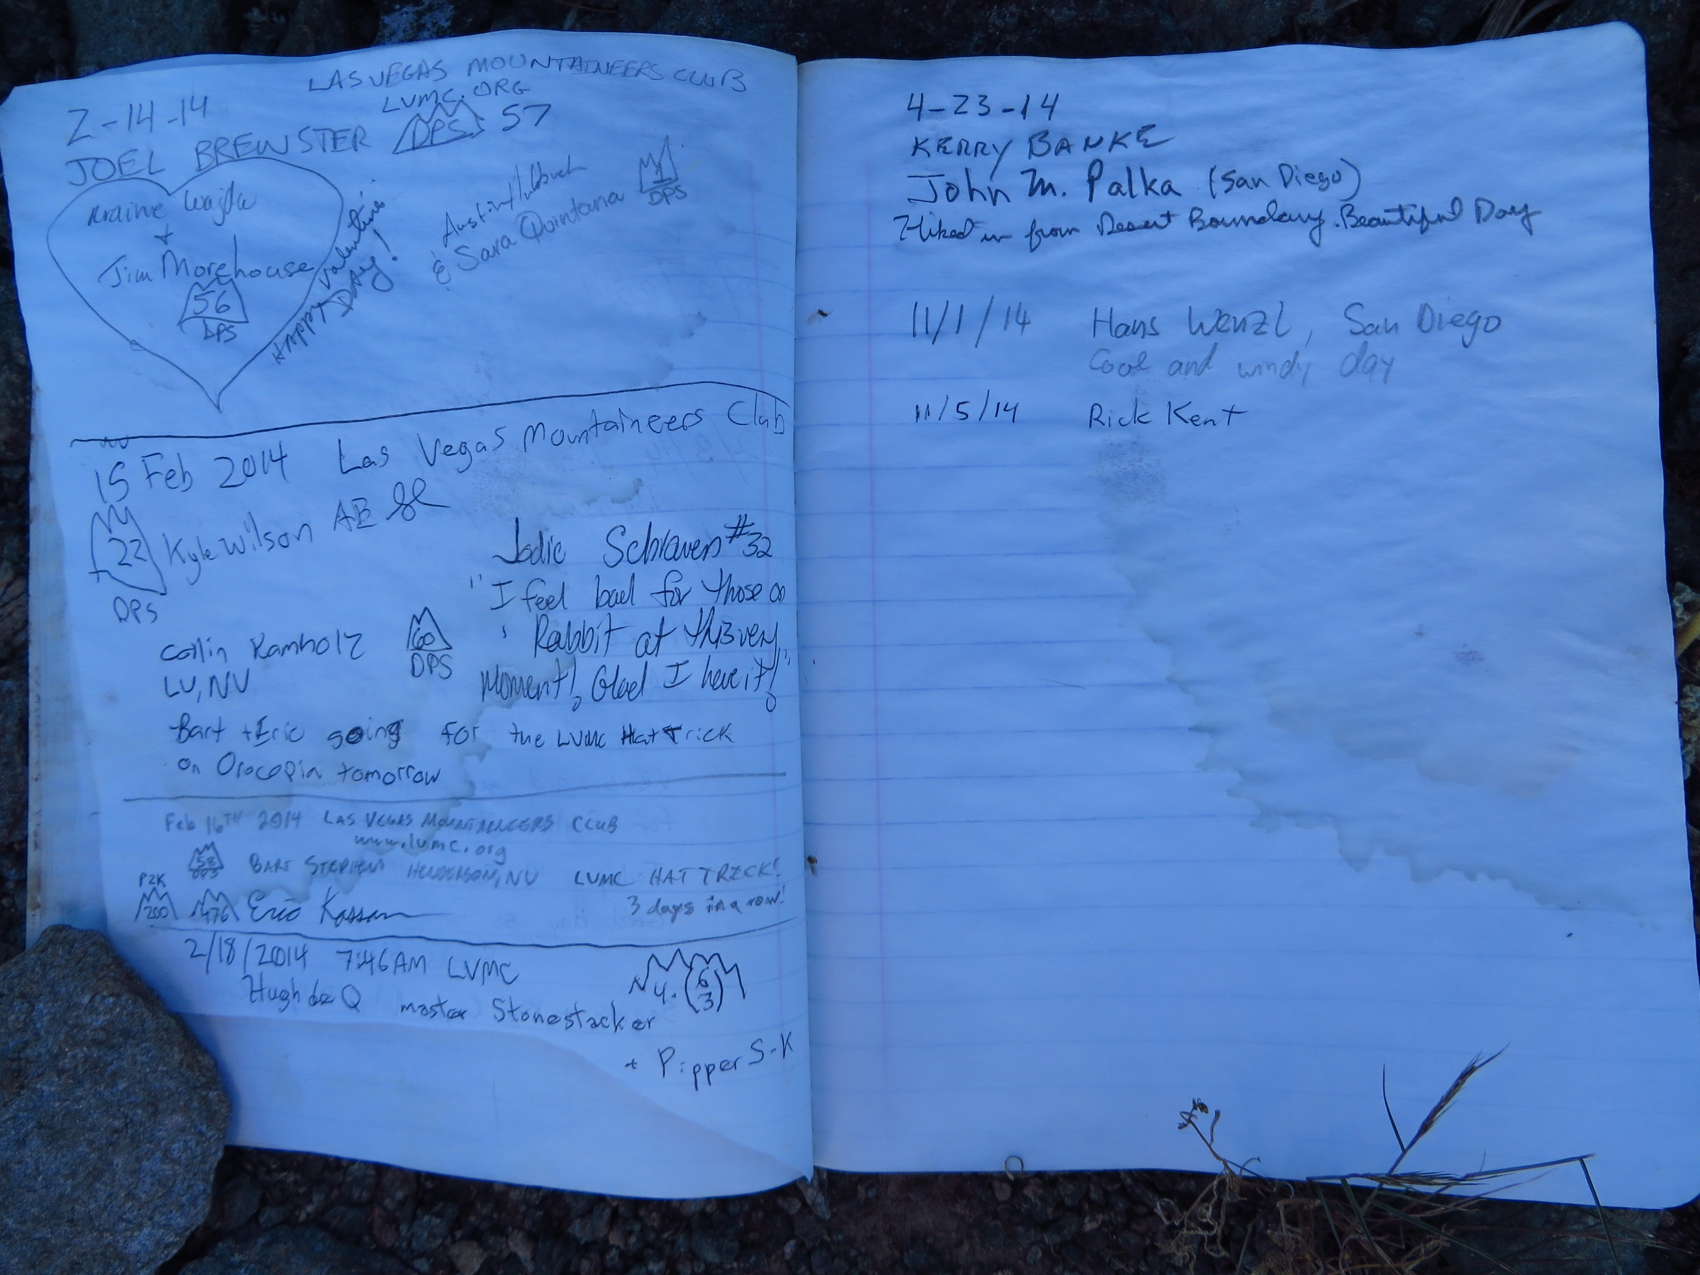 2-14-14
LAS VEGAS MOUNTAINEERS CLUB
LVMC.ORG
JOEL BREWSTER DPS 57
Wajda
+
Jim Morehouse
56
DPS
HAPPY Valentine's
DAY!
Austin
& Sara Quintana
1
DPS
15 Feb 2014 Las Vegas Mountaineers Club
22
DPS
Kyle Wilson AE
Jodie Schraven #32
"I feel bad for those on
Rabbit at this very
Moment! Glad I have it!"
Collin Kamholz
LV, NV
60
DPS
Bart + Eric going for the LVMC Hat Trick
on Orocopia tomorrow
Feb 16TH 2014 LAS VEGAS MOUNTAINEERS CLUB
www.lvmc.org
58
DPS
BART STEPHENS HENDERSON, NV LVMC HAT TRICK!
3 days in a row!
P2K
200
476
Eric Kassan
2/18/2014 7:46AM LVMC
Hugh de Q master Stonestacker
4. (6 3)
+ Pipper S-K
4-23-14
KERRY BANKE
John M. Palka (San Diego)
Hiked in from Desert Boundary. Beautiful Day
11/1/14 Hans Wenzl, San Diego
Cool and windy day
11/5/14 Rick Kent